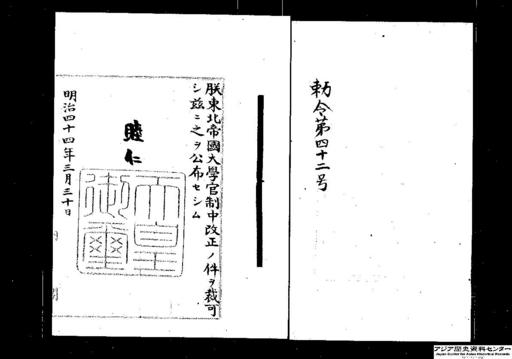 勅令第四十二号
朕東北帝國大學官制中改正ノ件ヲ裁可
シ茲ニ之ヲ公布セシム
睦仁
天皇
御璽
明治四十四年三月三十日
アジア歴史資料センター
Japan Center for Asian Historical Records